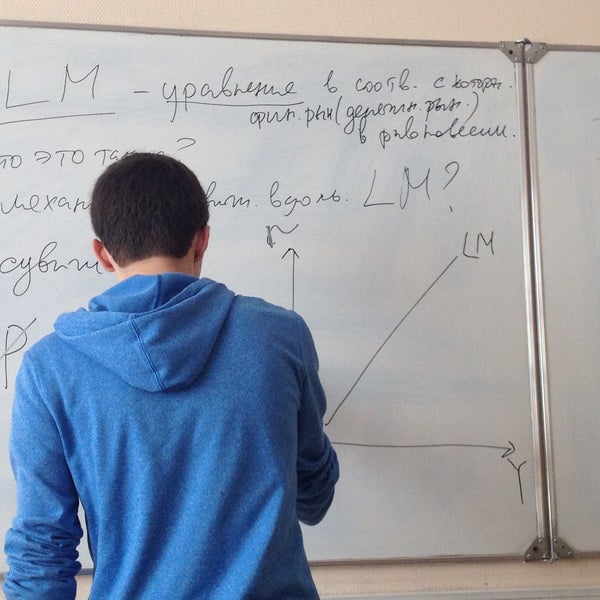 LM - уравнение в соотв. с котор.
фин. рын (денежн. рын.)
в равновесии.
это
механ движ. вдоль. LM?
r
LM
сдвиг
P
Y